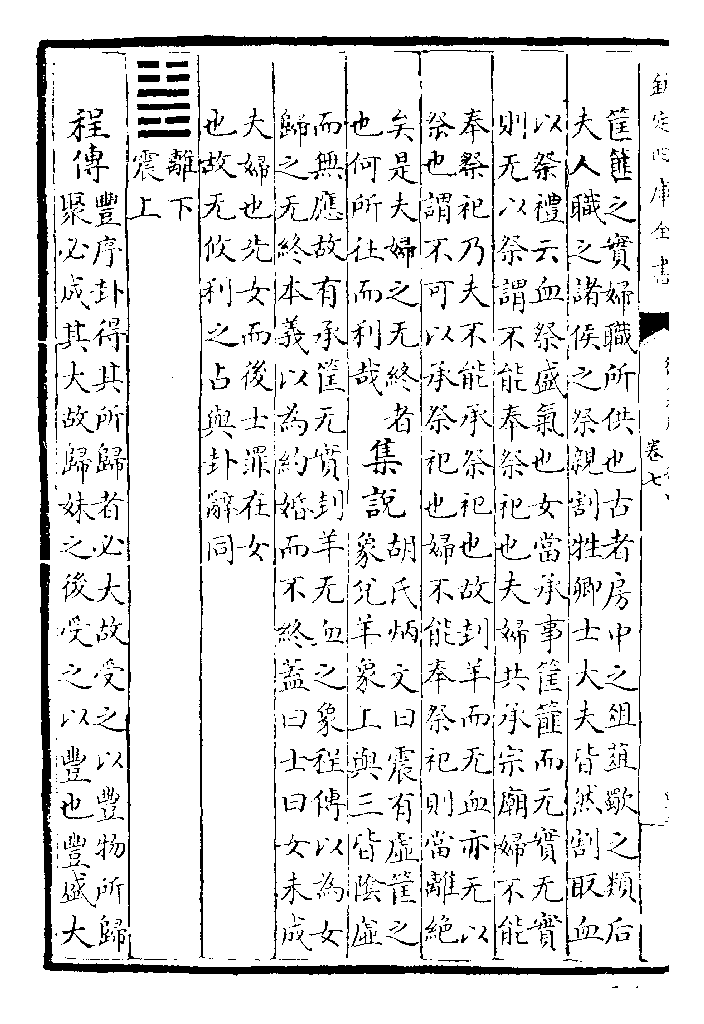 欽定四庫全書
卷七
筐篚之實婦職所供也古者房中之俎葅歜之類后
夫人職之諸侯之祭親割牲卿士大夫皆然割取血
以祭禮云血祭盛氣也女當承事筐篚而无實无實
則无以祭謂不能奉祭祀也夫婦共承宗廟婦不能
奉祭祀乃夫不能承祭祀也故刲羊而无血亦无以
祭也謂不可以承祭祀也婦不能奉祭祀則當離絶
矣是夫婦之无終者
也何所往而利哉
集說
胡氏炳文曰震有虛筐之
象兌羊象上與三皆陰虛
而無應故有承筐无實刲羊无血之象程傳以為女
歸之无終本義以為約婚而不終蓋曰士曰女未成
夫婦也先女而後士罪在女
也故无攸利之占與卦辭同
離下
震上
程傳
豐序卦得其所歸者必大故受之以豐物所歸
聚必成其大故歸妹之後受之以豐也豐盛大